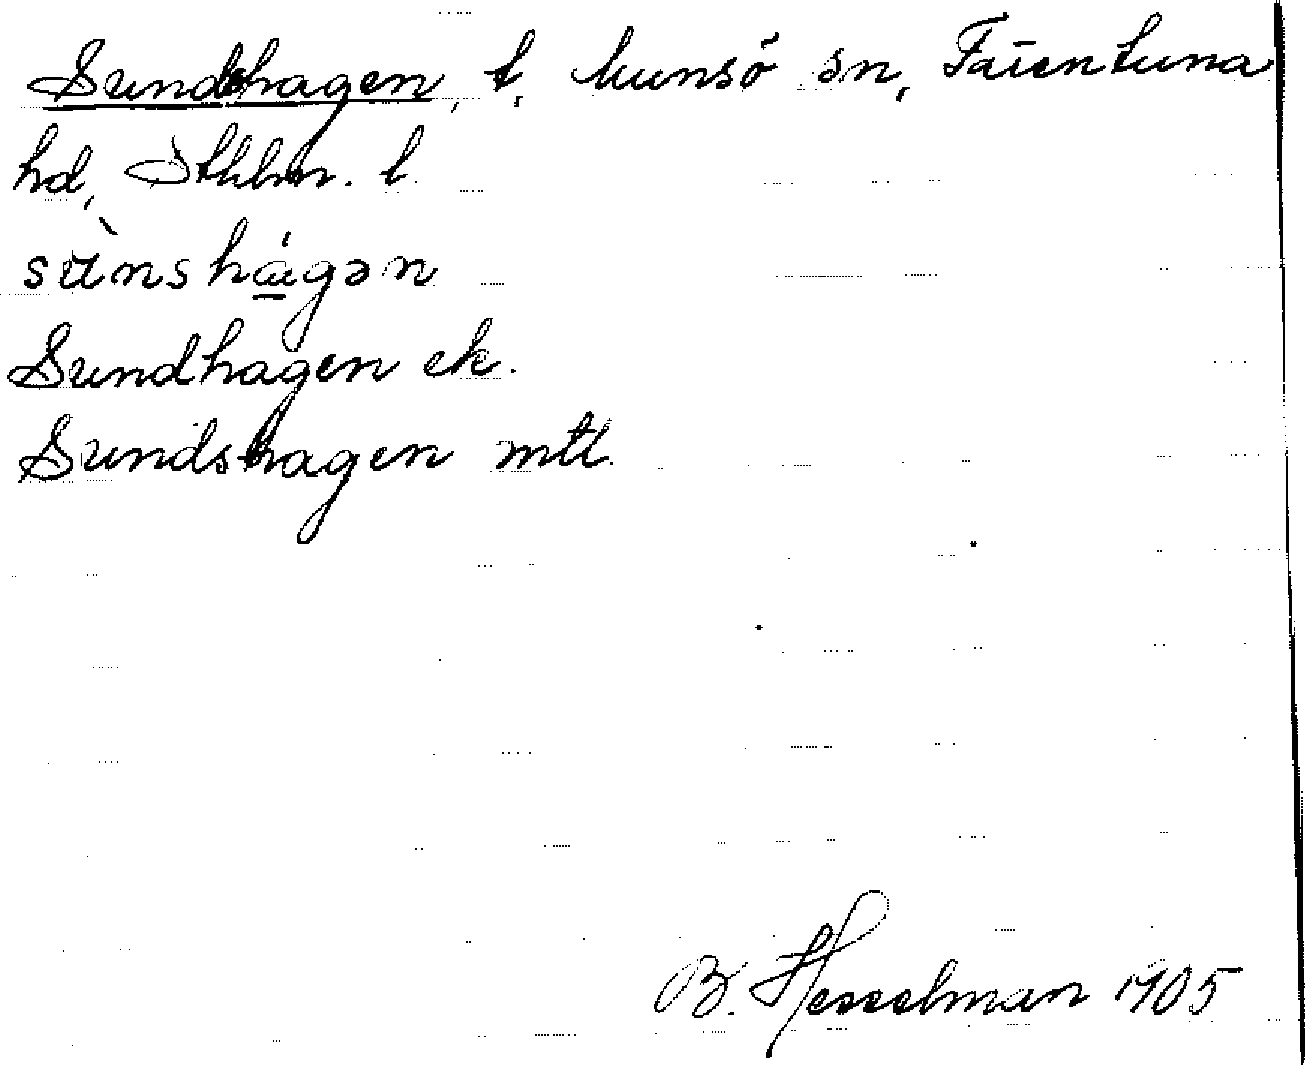 Sundshagen, t, Munsö sn, Färentuna
hd, Sthlm. l.
sùnshágən
Sundhagen ek.
Sundshagen mtl.
B. Hesselman 1905